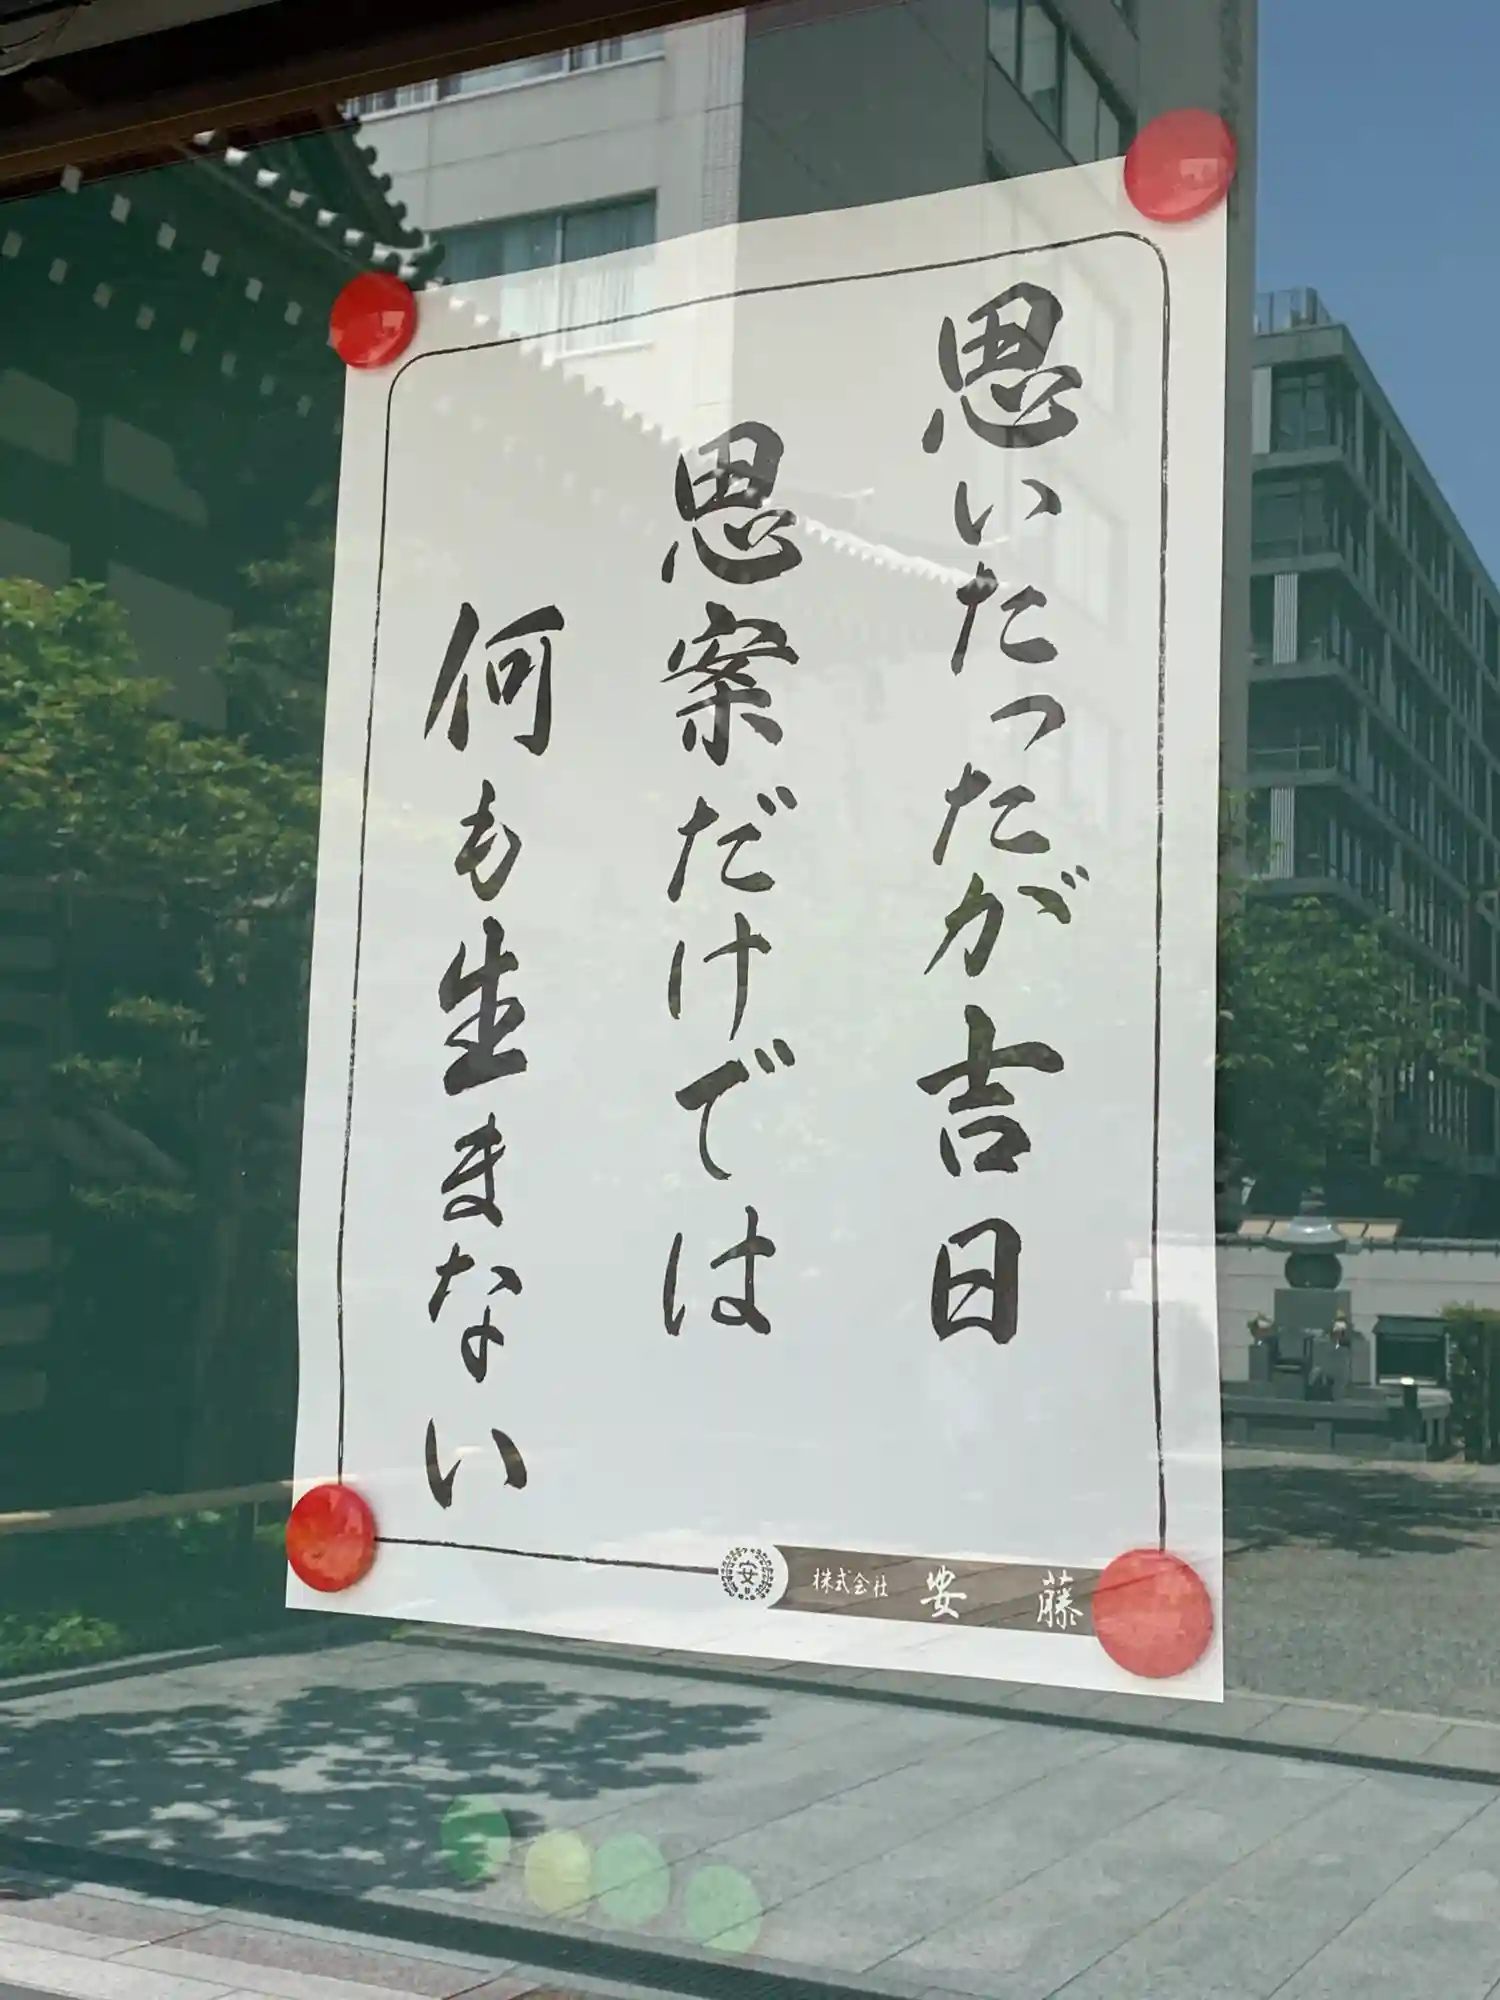 思いたったが吉日
思案だけでは
何も生まない
安
株式会社 安藤